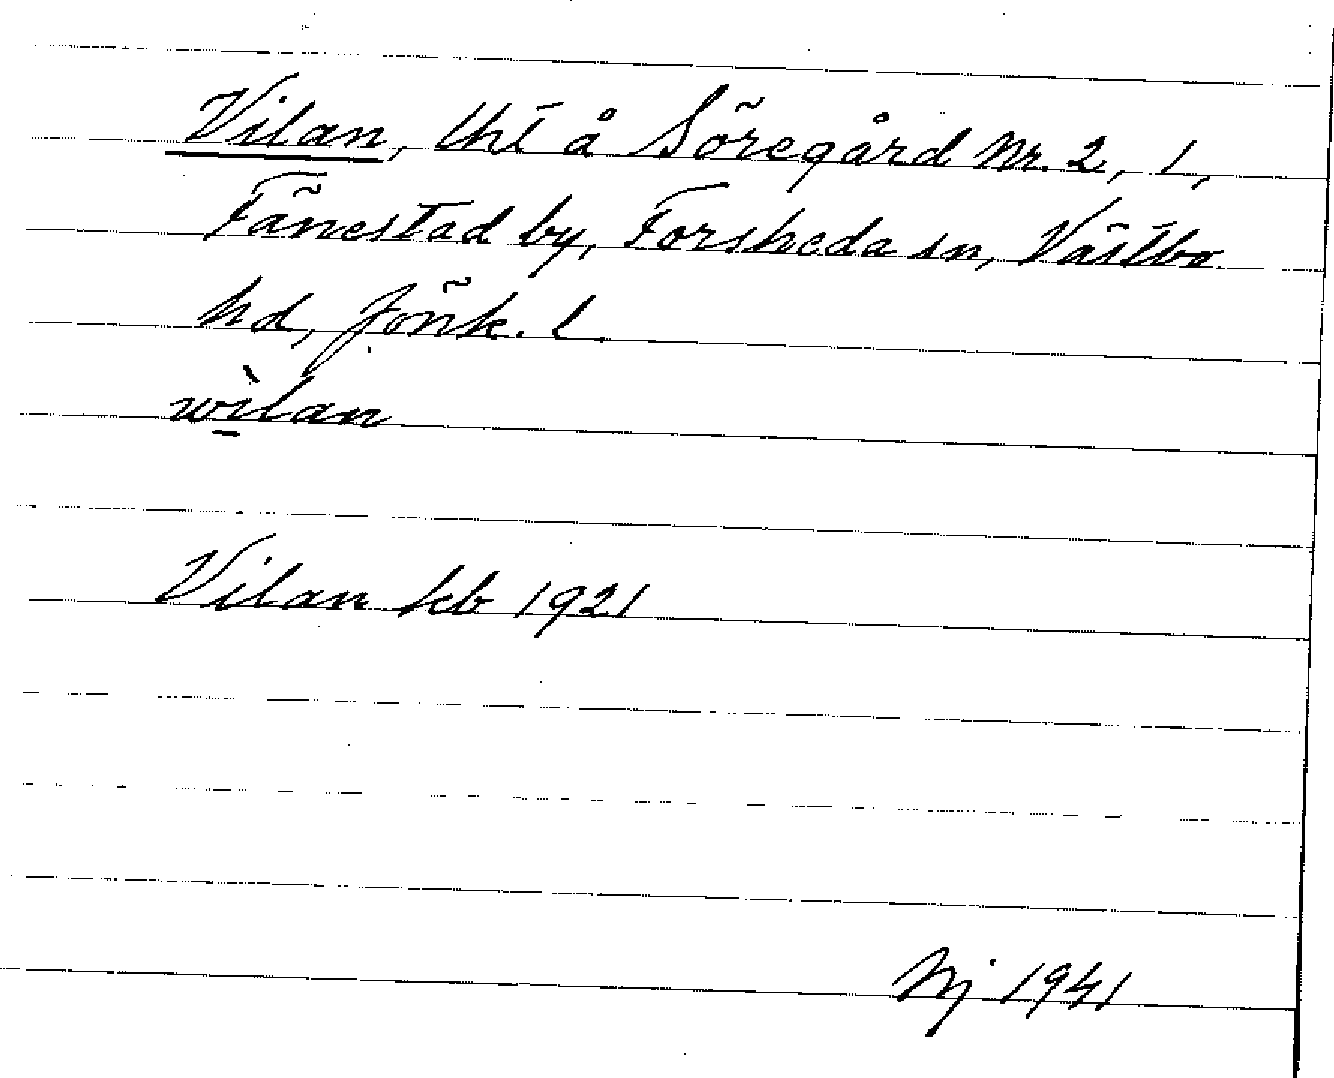 Vilan, lht å Söregård Nr. 2, 1,
Fånestad by, Forsheda sn, Västbo
hd, Jönk. l
wìlan
Vilan kb 1921
Nj 1941